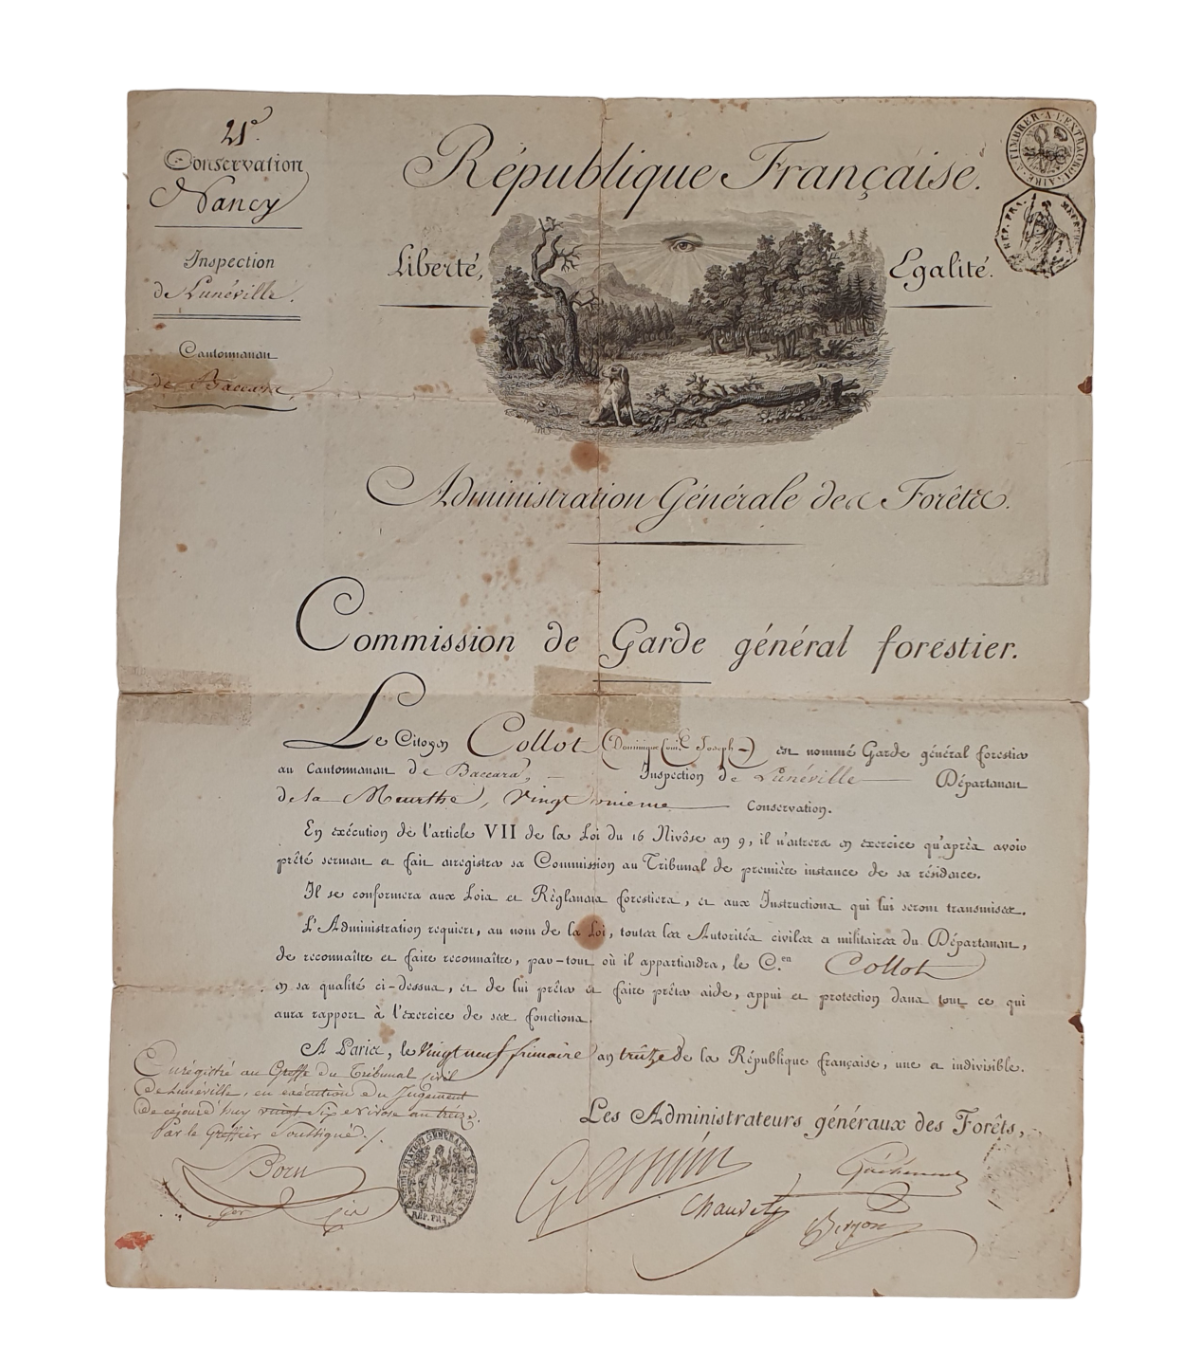 21.e
Conservation
Nancy
Inspection
de Lunéville.
Cantonnement
de Baccara,
République Française.
Liberté,
Egalité.
TIMBRER A L'EXTRAORDINAIRE.
REP. FRA.
Administration Générale des Forêts.
Commission de Garde général forestier.
Le Citoyen Collot (Dominique Joseph) est nommé Garde général forestier
au Cantonnement de Baccara, Inspection de Lunéville Département
de la Meurthe, Vingt unieme Conservation.
En exécution de l'article VII de la Loi du 16 Nivôse an 9, il n'entrera en exercice qu'après avoir
prêté serment et fait enregistrer sa Commission au Tribunal de première instance de sa résidence.
Il se conformera aux Lois et Règlemens forestiers, et aux Instructions qui lui seront transmises.
L'Administration requiert, au nom de la Loi, toutes les Autorités civiles et militaires du Département,
de reconnaître et faire reconnaître, par-tout où il appartiendra, le C.en Collot
en sa qualité ci-dessus, et de lui prêter et faire prêter aide, appui et protection dans tout ce qui
aura rapport à l'exercice de ses fonctions.
A Paris, le vingt neuf frimaire an treize de la République française, une et indivisible.
Enrégistré au Greffe du Tribunal civil
de Lunéville, en exécution du Jugement
de cejourd'huy vingt Six nivose an treize.
Par le Greffier Soussigné./.
Les Administrateurs généraux des Forêts,
Born
Gossuin
Chauvet
Guéhéneuc
Bergon
ADMINISTRATION GENERALE DES FORETS
RÉP. FRA.